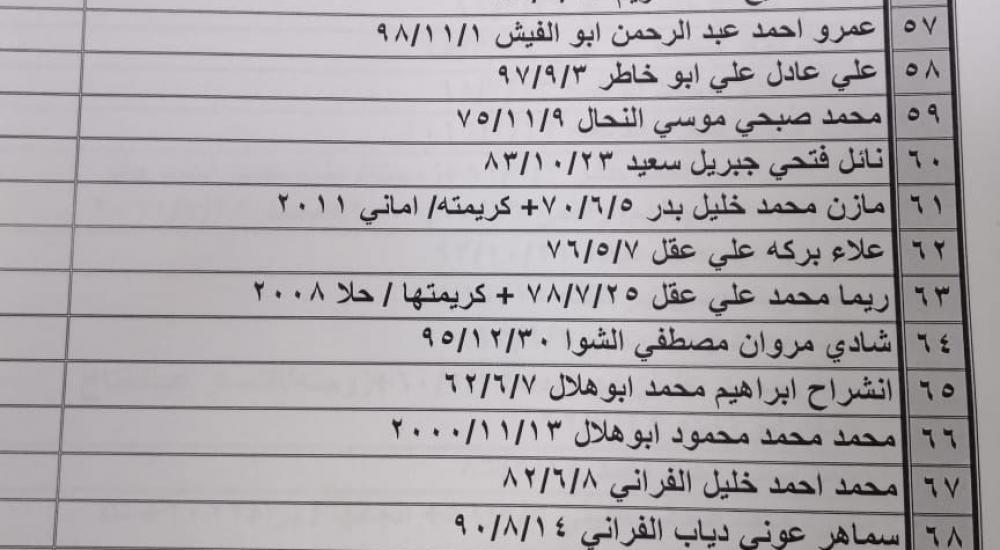 ٥٧ عمرو احمد عبد الرحمن ابو الفيش ٩٨/١١/١
٥٨ علي عادل علي ابو خاطر ٩٧/٩/٣
٥٩ محمد صبحي موسي النحال ٧٥/١١/٩
٦٠ نائل فتحي جبريل سعيد ٨٣/١٠/٢٣
٦١ مازن محمد خليل بدر ٧٠/٦/٥+ كريمته/ اماني ٢٠١١
٦٢ علاء بركه علي عقل ٧٦/٥/٧
٦٣ ريما محمد علي عقل ٧٨/٧/٢٥ + كريمتها / حلا ٢٠٠٨
٦٤ شادي مروان مصطفي الشوا ٩٥/١٢/٣٠
٦٥ انشراح ابراهيم محمد ابوهلال ٦٢/٦/٧
٦٦ محمد محمد محمود ابوهلال ٢٠٠٠/١١/١٣
٦٧ محمد احمد خليل الفراني ٨٢/٦/٨
٦٨ سماهر عوني دياب الفراني ٩٠/٨/١٤